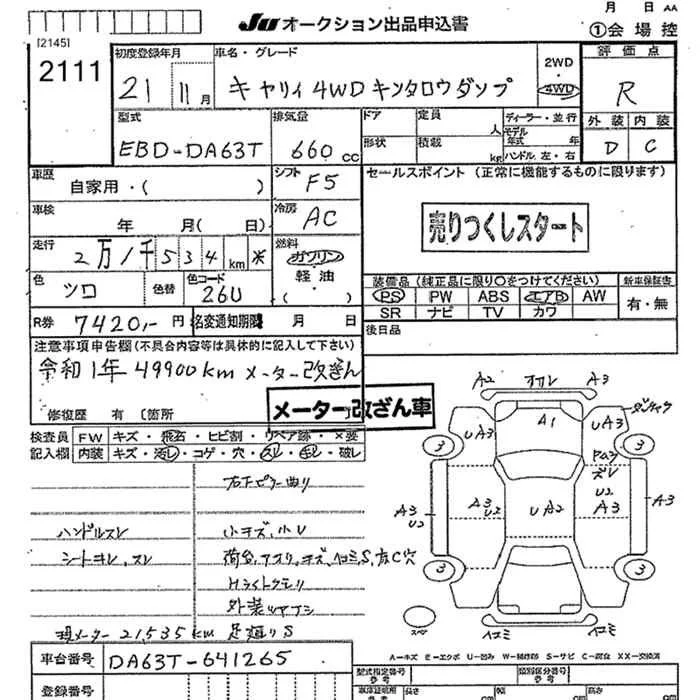 月 日 AA
JU オークション出品申込書 ①会場控
[2145]
2111
初度登録年月
21 11月
車名・グレード
キャリィ 4WD キンタロウダンプ
2WD
・
4WD
評価点
R
外装 内装
D C
型式
EBD-DA63T
排気量
660 cc
ドア
定員
人
形状
積載
kg
ディーラー・並行
モデル年式 年
ハンドル 左・右
車歴
自家用・( )
シフト
F5
セールスポイント (正常に機能するものに限ります)
売りつくしスタート
車検
年 月( 日)
冷房
AC
走行
2万1千534km *
燃料
ガソリン
軽・油
・( )
色
ツロ
色替
色コード
26U
装備品(純正品に限り○をつけてください)
新車保証書
PS PW ABS エアB AW
SR ナビ TV カワ
有・無
R券 7420,- 円
名変通知期限 月 日
後日品
注意事項申告欄(不具合内容等は具体的に記入して下さい)
令和1年 49900km メーター改ざん
修復歴 有 〔箇所
メーター改ざん車
検査員記入欄
FW キズ・飛石・ヒビ割・リペア跡・×要
内装 キズ・汚レ・コゲ・穴・スレ・破レ
右下ピラー曲り
ハンドルスレ
小キズ、小U
シートヨレ、スレ
Hライトクモリ
現メーター 21,535km 足廻りS
A2 A3
A1
UA3 UA3
PA3
ズレ
U2
A3
3 3
A3
U2
A3
U2
UA2
A3
3 3
スペア
ヨコミ ヨコミ
A=キズ E=エクボ U=凹み W=補修跡 S=サビ C=腐食 XX=交換済
車台番号 DA63T-641265
型式指定番号
参考
類別区分番号
参考
登録番号